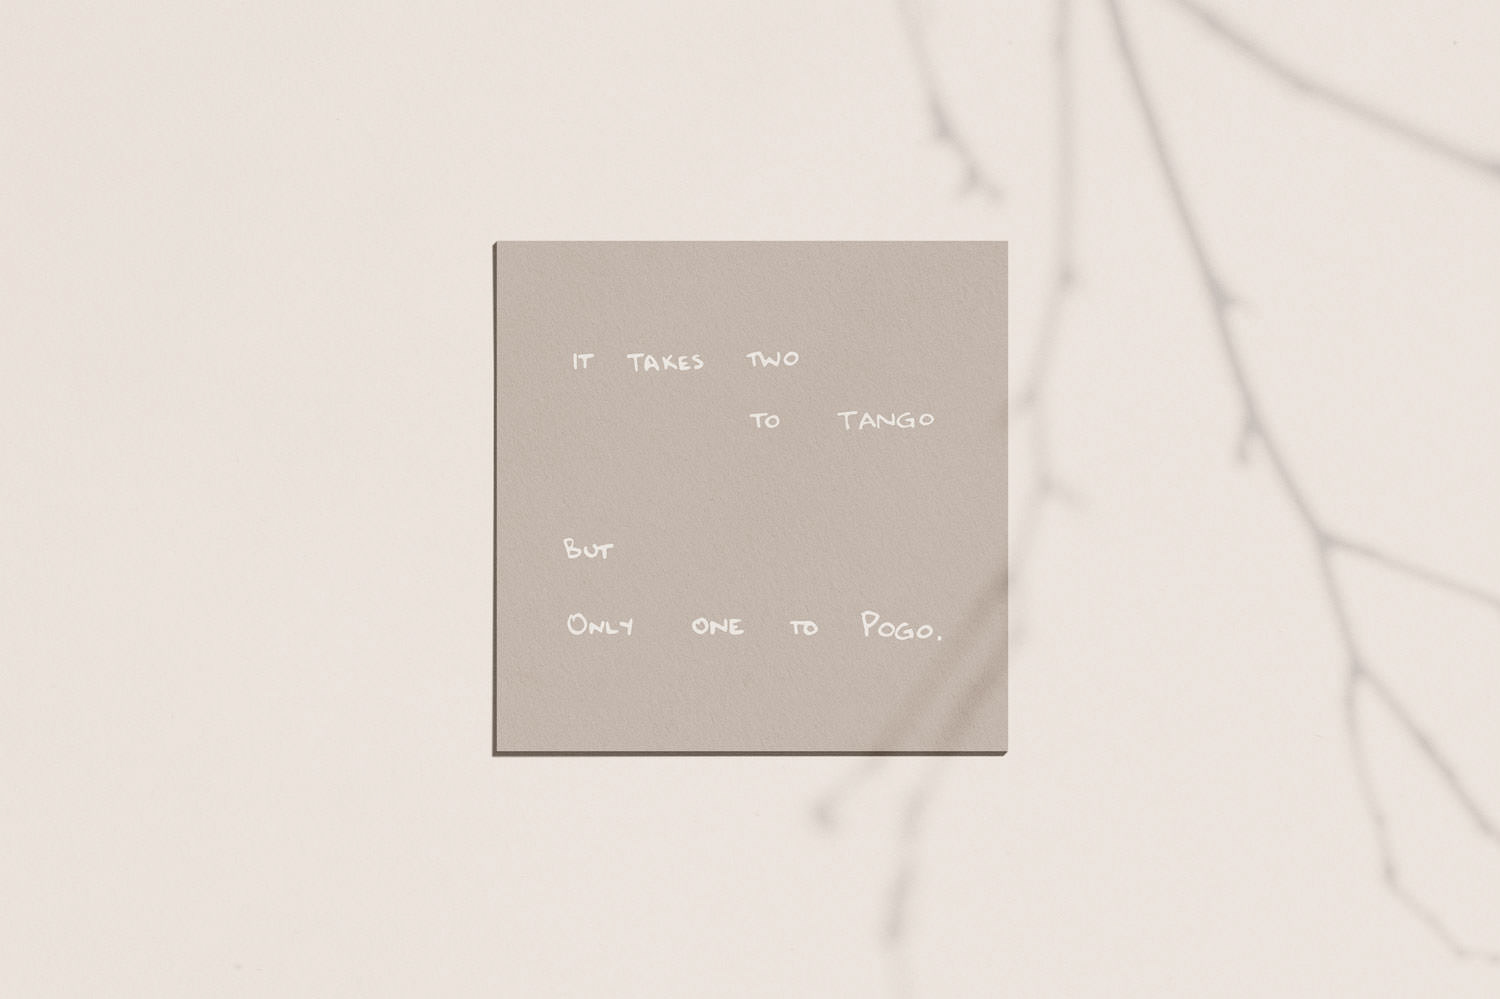 IT TAKES TWO
TO TANGO
BUT
ONLY ONE TO POGO.